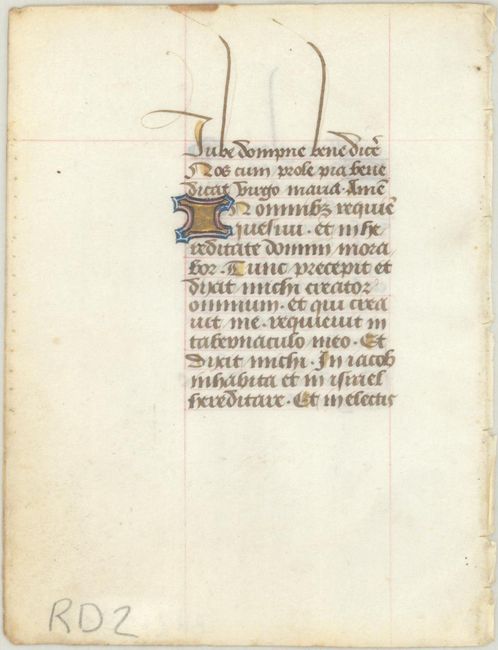 Jube dompne bene dicẽ
Nos cum prole pia bene
dicat virgo maria. Amẽ
In omnibꝫ requiẽ
quesiui. et in he
reditate domini mora
bor. Tunc precepit et
dixit michi creator
omnium. et qui crea
uit me. requieuit in
tabernaculo meo. Et
dixit michi. In iacob
inhabita et in israel
hereditare. Et in electis
RD2